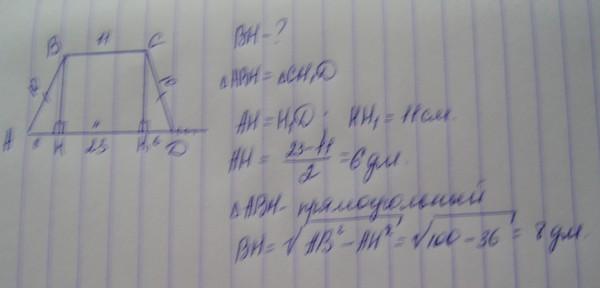 B 11 C
10 10
A 6 H 11 23 H₁ 6 D
BH - ?
△ABH = △CH₁D
AH = H₁D. HH₁ = 11 см.
AH = (23-11)/2 = 6 дм.
△ABH - прямоугольный
BH = √(AB² - AH²) = √(100 - 36) = 8 дм.